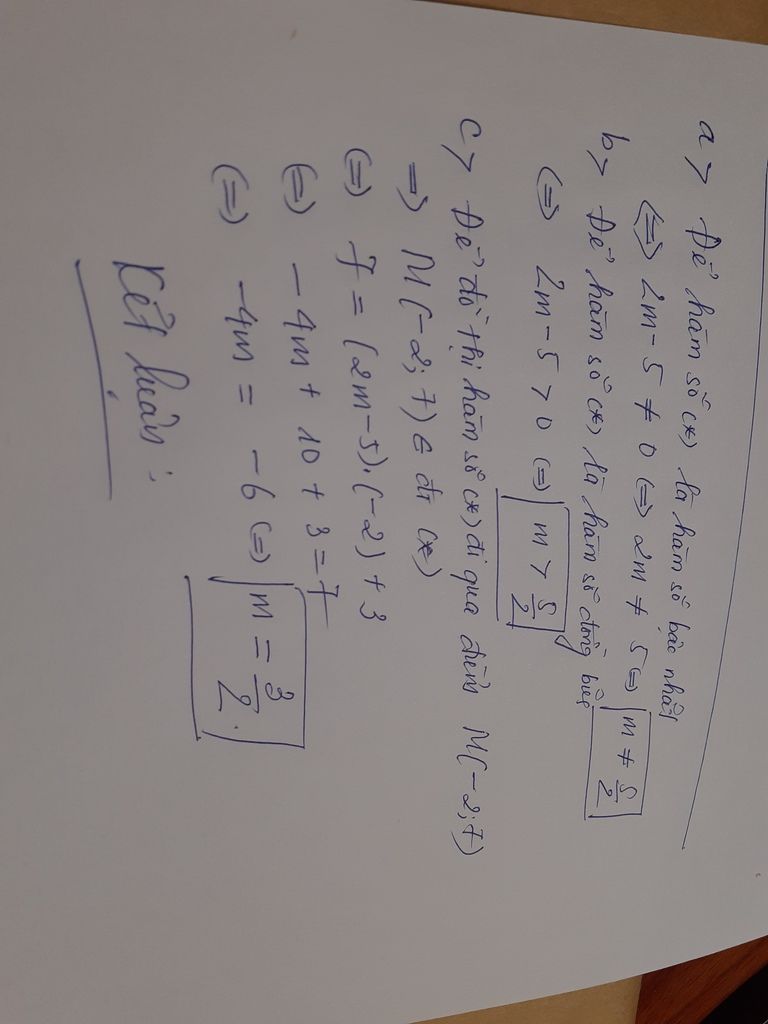 a> Để hàm số (*) là hàm số bậc nhất
(=) 2m - 5 ≠ 0 (=) 2m ≠ 5 (=) m ≠ 5/2
b> Để hàm số (*) là hàm số đồng biến
(=) 2m - 5 > 0 (=) m > 5/2
c> Để đồ thị hàm số (*) đi qua điểm M(-2; 7)
=> M(-2; 7) ∈ đt (*)
(=) 7 = (2m - 5).(-2) + 3
(=) - 4m + 10 + 3 = 7
(=) - 4m = - 6 (=) m = 3/2.
Kết luận: